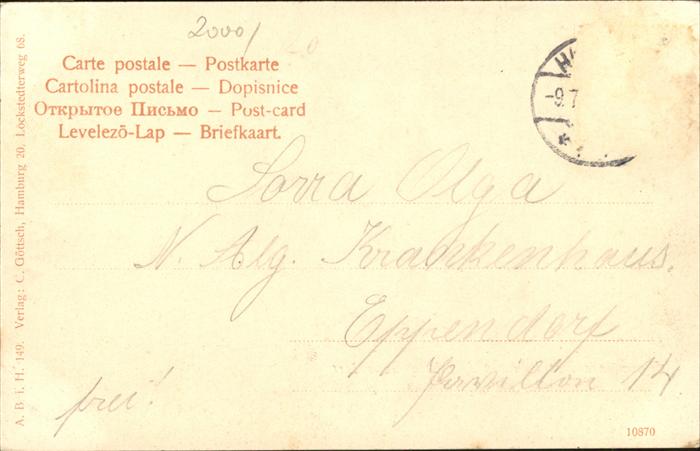 2000/
Carte postale — Postkarte
Cartolina postale — Dopisnice
Открытое Письмо — Post-card
Levelezō-Lap — Briefkaart.
HA
-9.7
Olga
N. Alg. Krankenhaus.
Eppendorf
Pavillon 14
frei!
A. B i. H. 149. Verlag: C. Göttsch, Hamburg 20, Lockstedterweg 68.
10870